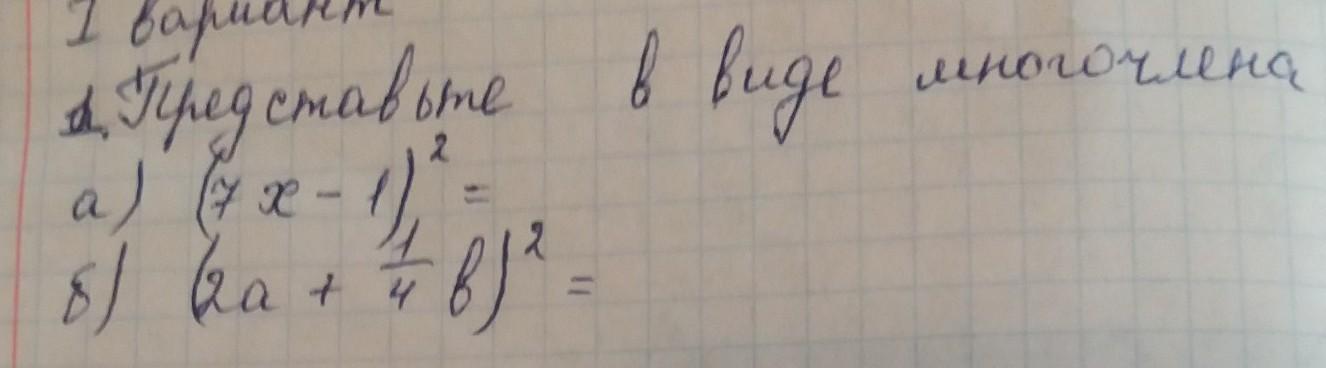 I вариант
1. Представьте в виде многочлена
а) (7x - 1)² =
б) (2a + 1/4 b)² =